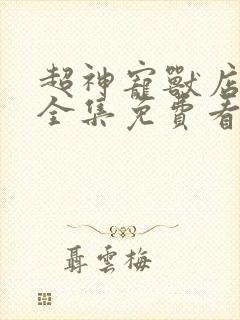 超神寵獸店
全集免費看
聶雲梅